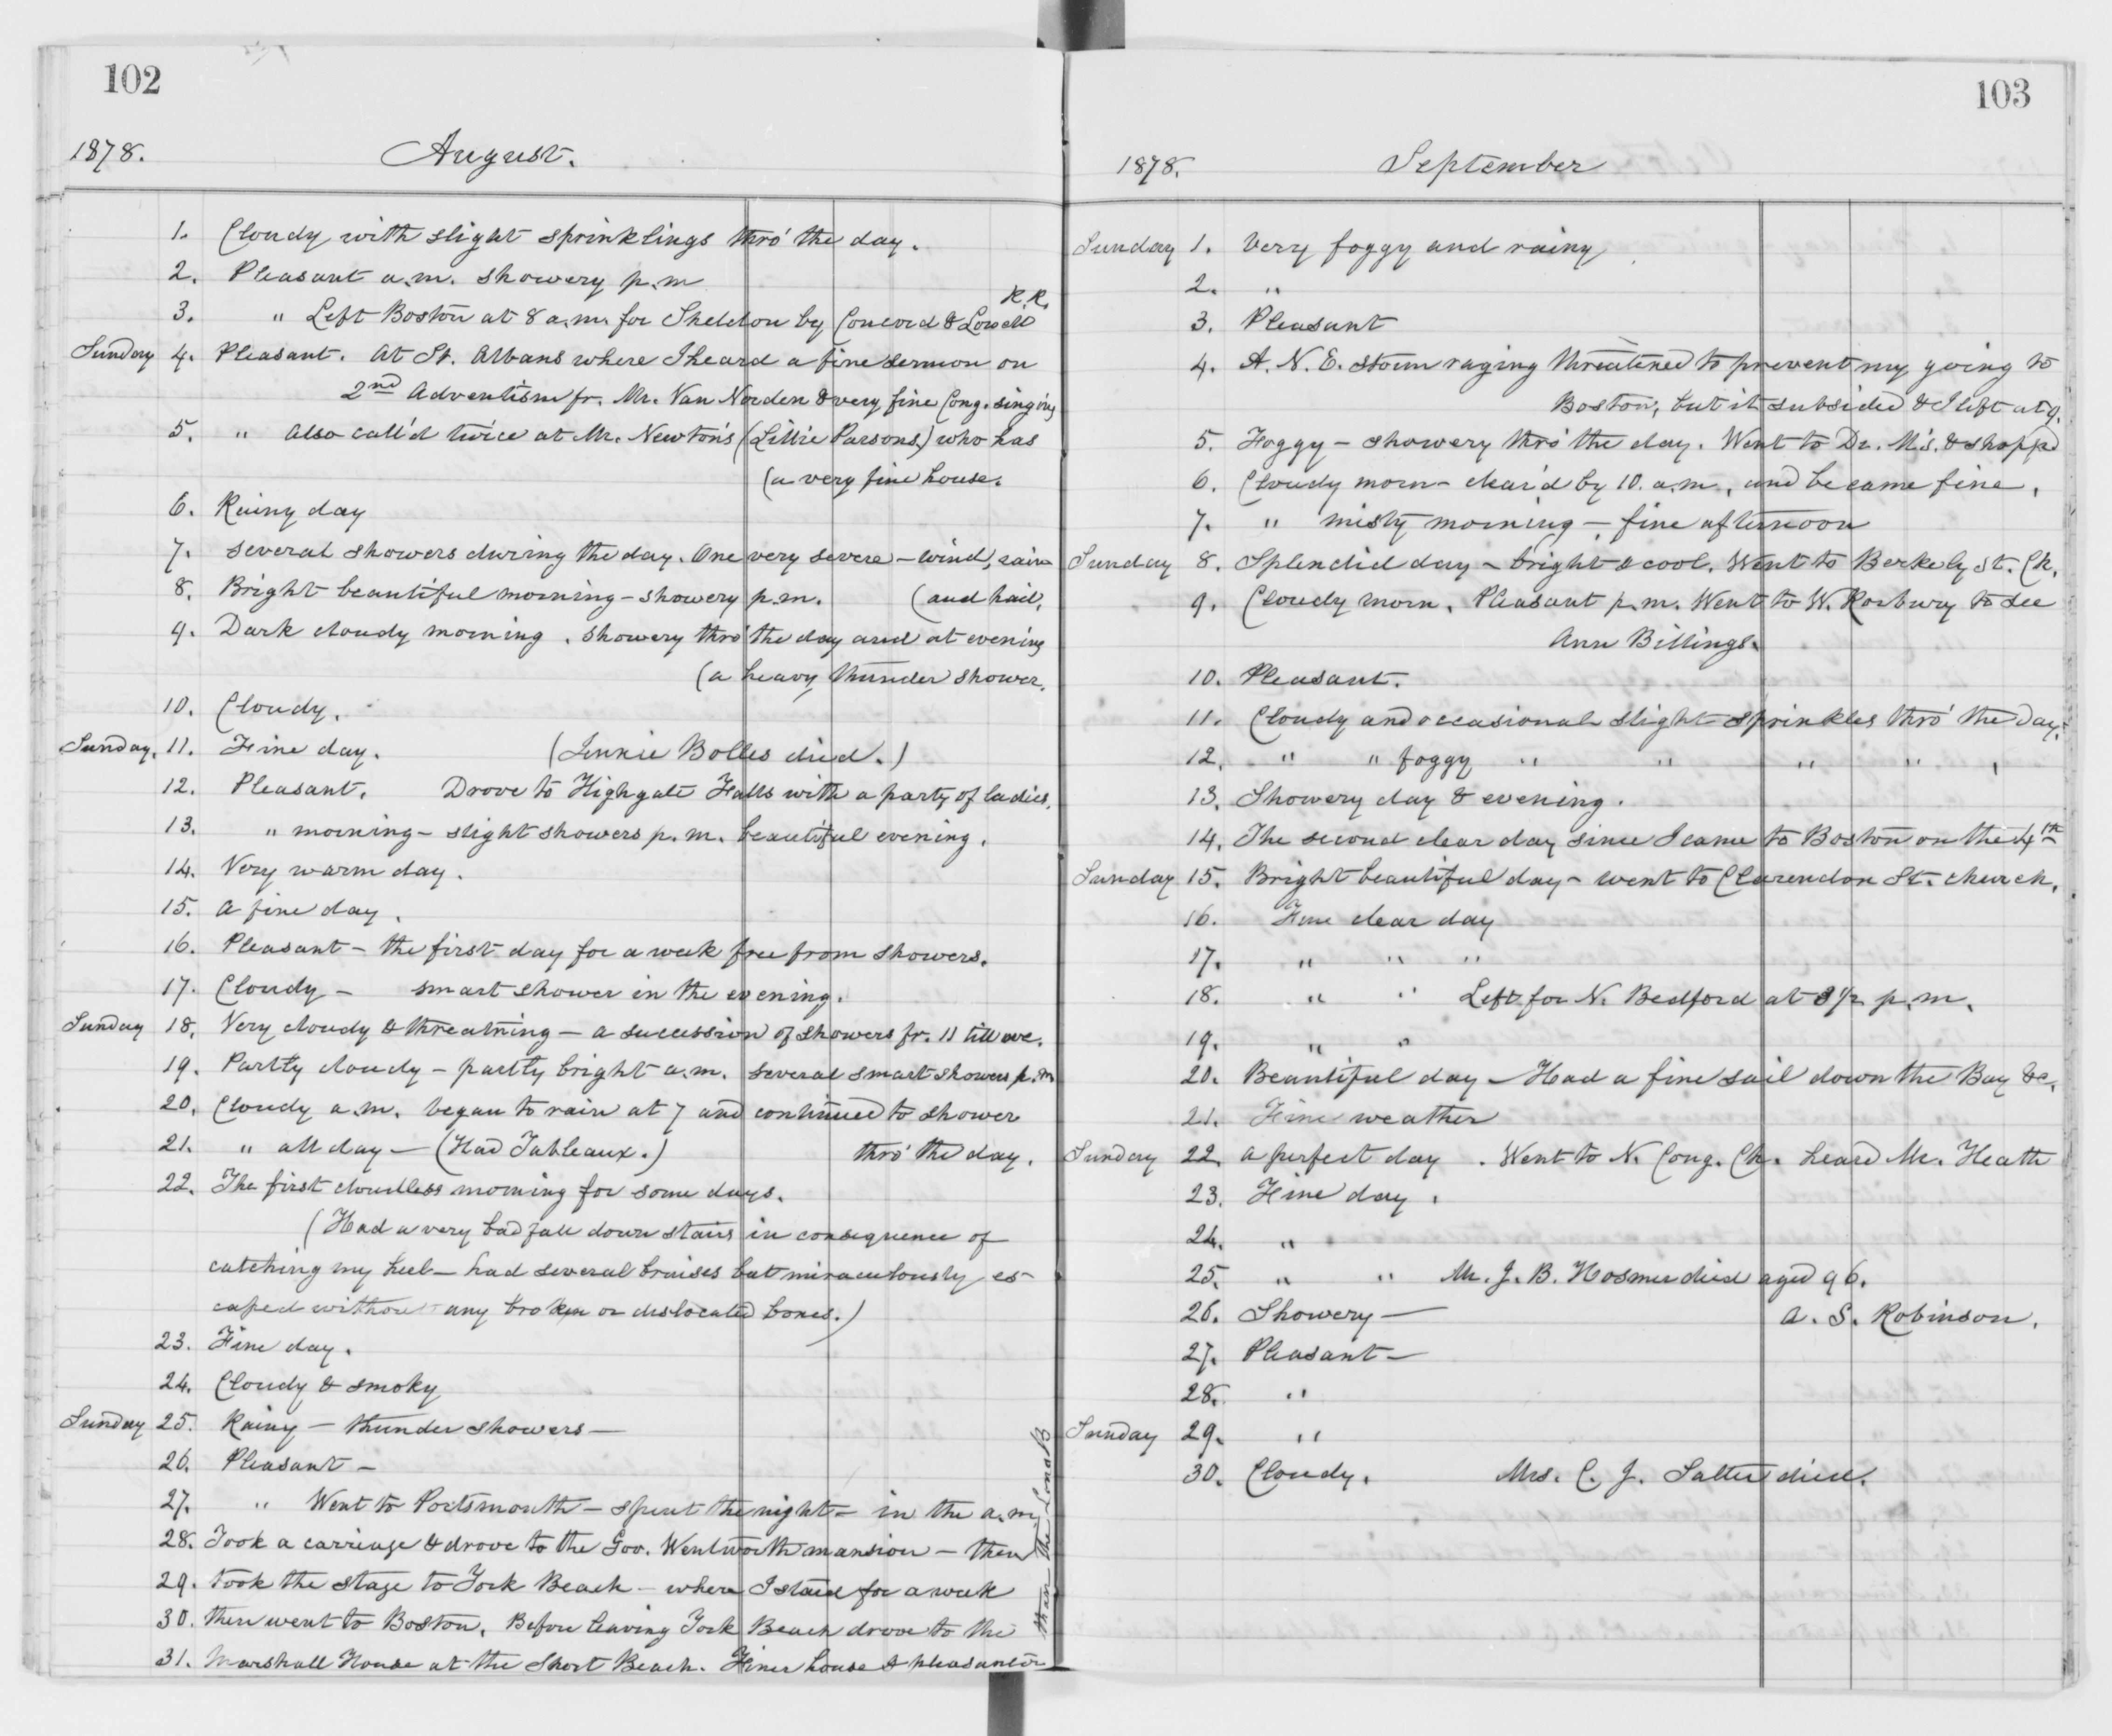 102
1878. August.
1. Cloudy with slight sprinklings thro' the day.
2. Pleasant a.m. showery p.m
R.R.
3. " Left Boston at 8 a.m. for Sheldon by Concord & Lowell
Sunday 4. Pleasant. At St. Albans where I heard a fine sermon on
2nd Adventism fr. Mr. Van Norden & very fine Cong. singing
5. " Also call'd twice at Mr. Newton's (Lillie Parsons) who has
(a very fine house.
6. Rainy day
7. Several showers during the day. One very severe – wind, rain
8. Bright beautiful morning – showery p.m. (and hail.
9. Dark cloudy morning. Showery thro' the day and at evening
(a heavy thunder shower.
10. Cloudy.
Sunday. 11. Fine day. (Jennie Bolles died.)
12. Pleasant. Drove to Highgate Falls with a party of ladies.
13. " morning – slight showers p.m. beautiful evening.
14. Very warm day.
15. A fine day.
16. Pleasant – the first day for a week free from showers.
17. Cloudy – smart shower in the evening.
Sunday 18. Very cloudy & threatning – a sucession of showers fr. 11 till eve.
19. Partly cloudy – partly bright a.m. several smart showers p.m
20. Cloudy a.m. began to rain at 7 and continued to shower
21. " all day – (Had Tableaux.) thro' the day.
22. The first cloudless morning for some days.
(Had a very bad fall down stairs in consequence of
catching my heel – had several bruises but miraculously es-
caped without any broken or dislocated bones.)
23. Fine day.
24. Cloudy & smoky
Sunday 25. Rainy – thunder showers –
26. Pleasant –
27. " Went to Portsmouth – spent the night – in the a.m.
28. Took a carriage & drove to the Gov. Wentworth mansion – then
29. took the stage to York Beach – where I staid for a week
30. then went to Boston. Before leaving York Beach drove to the
31. Marshall House at the Short Beach. Finer house & pleasanter
than the Long B
103
1878. September
Sunday 1. Very foggy and rainy
2. "
3. Pleasant
4. A. N.E. storm raging threatened to prevent my going to
Boston, but it subsided & I left at 9.
5. Foggy – showery thro' the day. Went to Dr. M's. & shopp'd
6. Cloudy morn – clear'd by 10. a.m., and became fine.
7. " misty morning – fine afternoon
Sunday 8. Splendid day – bright & cool. Went to Berkely St. Ch.
9. Cloudy morn. Pleasant p.m. Went to W. Roxbury to see
Ann Billings.
10. Pleasant.
11. Cloudy and occasional slight sprinkles thro' the day.
12. " " foggy " " " " "
13. Showery day & evening.
14. The second clear day since I came to Boston on the 4th
Sunday 15. Bright beautiful day – went to Clarendon St. church.
16. A Fine clear day
17. " " "
18. " " Left for N. Bedford at 3 1/2 p.m.
19. " "
20. Beautiful day – Had a fine sail down the Bay &c.
21. Fine weather
Sunday 22. A perfect day. Went to N. Cong. Ch. heard Mr. Heath
23. Fine day.
24. " "
25. " " Mr. J. B. Hosmer died aged 96.
26. Showery – A. S. Robinson.
27. Pleasant –
28. "
Sunday 29. "
30. Cloudy. Mrs. C. J. Salter died.